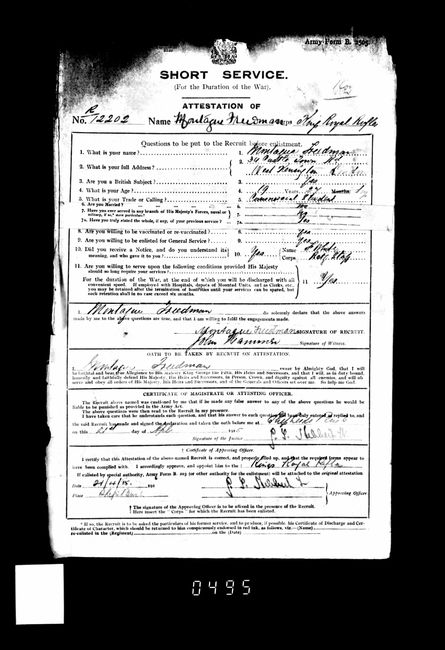 Army Form B. 2505
SHORT SERVICE.
(For the Duration of the War).
ATTESTATION OF
No. R/12202 Name Montague Freedman Corps Kings Royal Rifles
Questions to be put to the Recruit before enlistment.
1. What is your name? 1. Montague Freedman
2. What is your full Address? 2.
West Kensington
3. Are you a British Subject? 3. Yes
4. What is your Age? 4. 19 Years Months
5. What is your Trade or Calling? 5. Student
6. Are you Married? 6.
7. Have you ever served in any branch of His Majesty's Forces, naval or military, if so, which particulars? 7.
7a. Have you truly stated the whole, if any, of your previous service?
8. Are you willing to be vaccinated or re-vaccinated? 8. Yes
9. Are you willing to be enlisted for General Service? 9. Yes
10. Did you receive a Notice, and do you understand its meaning, and who gave it to you? 10. Yes Name Corps
11. Are you willing to serve upon the following conditions provided His Majesty should so long require your services?
For the duration of the War, at the end of which you will be discharged with all convenient speed. If employed with Hospitals, depots of Mounted Units, and as Clerks, etc., you may be retained after the termination of hostilities until your services can be spared, but such retention shall in no case exceed six months. 11. Yes
I, Montague Freedman do solemnly declare that the above answers
made by me to the above questions are true, and that I am willing to fulfil the engagements made.
Montague Freedman SIGNATURE OF RECRUIT.
John Hammond Signature of Witness.
OATH TO BE TAKEN BY RECRUIT ON ATTESTATION.
I, Montague Freedman swear by Almighty God, that I will
be faithful and bear true Allegiance to His Majesty King George the Fifth, His Heirs and Successors, and that I will, as in duty bound,
honestly and faithfully defend His Majesty, His Heirs and Successors, in Person, Crown, and Dignity against all enemies, and will observe
and obey all orders of His Majesty, His Heirs and Successors, and of the Generals and Officers set over me. So help me God.
CERTIFICATE OF MAGISTRATE OR ATTESTING OFFICER.
The Recruit above named was cautioned by me that if he made any false answer to any of the above questions he would be
liable to be punished as provided in the Army Act.
The above questions were then read to the Recruit in my presence.
I have taken care that he understands each question, and that his answer to each question has been duly entered as replied to, and
the said Recruit has made and signed the declaration and taken the oath before me at
on this 21 day of April
Signature of the Justice
† Certificate of Approving Officer.
I certify that this Attestation of the above-named Recruit is correct, and properly filled up, and that the required forms appear to
have been complied with. I accordingly approve, and appoint him to the ‡ Kings Royal Rifles
If enlisted by special authority, Army Form B. 203 (or other authority for the enlistment) will be attached to the original attestation
Date 21/4/15
Place
Approving Officer
† The signature of the Approving Officer is to be affixed in the presence of the Recruit.
‡ Here insert the "Corps" for which the Recruit has been enlisted.
* If so, the Recruit is to be asked the particulars of his former service, and to produce, if possible, his Certificate of Discharge and Certificate
of Character, which should be returned to him conspicuously endorsed in red ink, as follows, viz.—(Name)
re-enlisted in the (Regiment) on the (Date)
0495